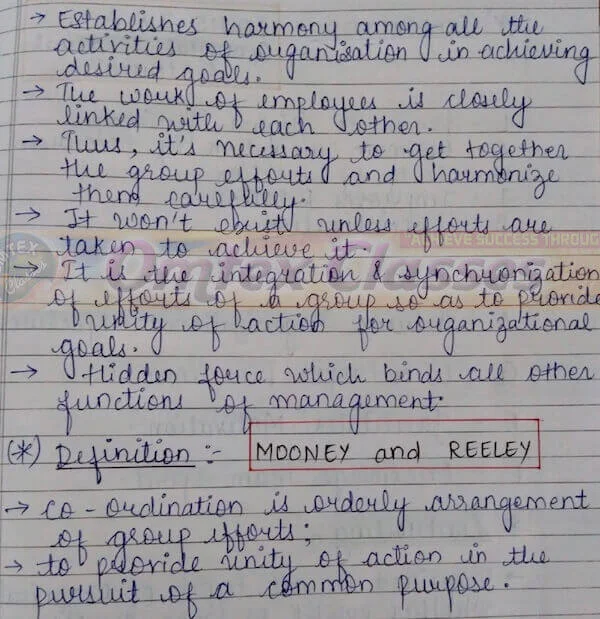 → Establishes harmony among all the
activities of organisation in achieving
desired goals.
→ The work of employees is closely
linked with each other.
→ Thus, it's necessary to get together
the group efforts and harmonize
them carefully.
→ It won't exist unless efforts are
taken to achieve it
→ It is the integration & synchronization
of efforts of a group so as to provide
unity of action for organizational
goals.
→ Hidden force which binds all other
functions of management.
(*) Definition :- MOONEY and REELEY
→ co-ordination is orderly arrangement
of group efforts;
→ to provide unity of action in the
pursuit of a common purpose.
Omtex Classes
ACHIEVE SUCCESS THROUGH